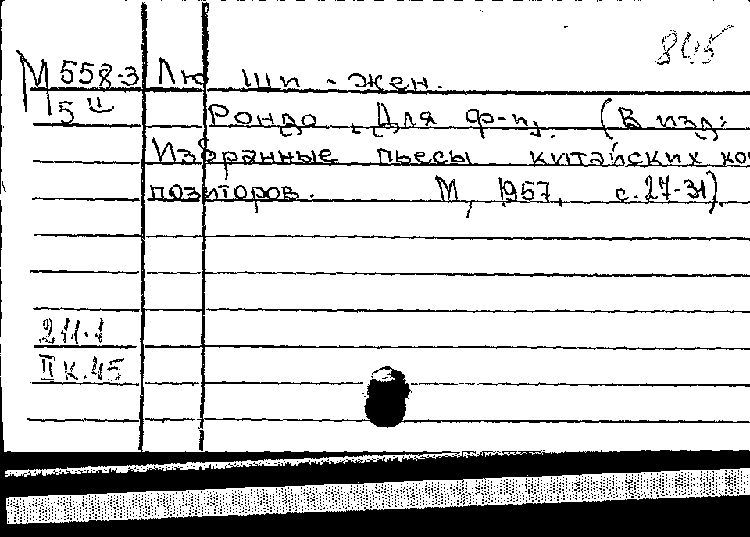 845
М 558-3 Лю Ши-жен.
5 Рондо. Для ф-п. (В изд:
Избранные пьесы китайских ком
позиторов. М, 1957, с. 27-31).
211.1
II к.45